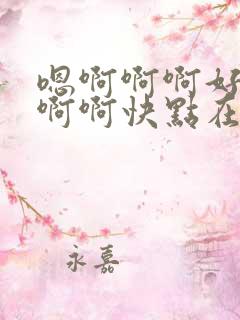 嗯啊啊啊好
啊啊快點在
永嘉